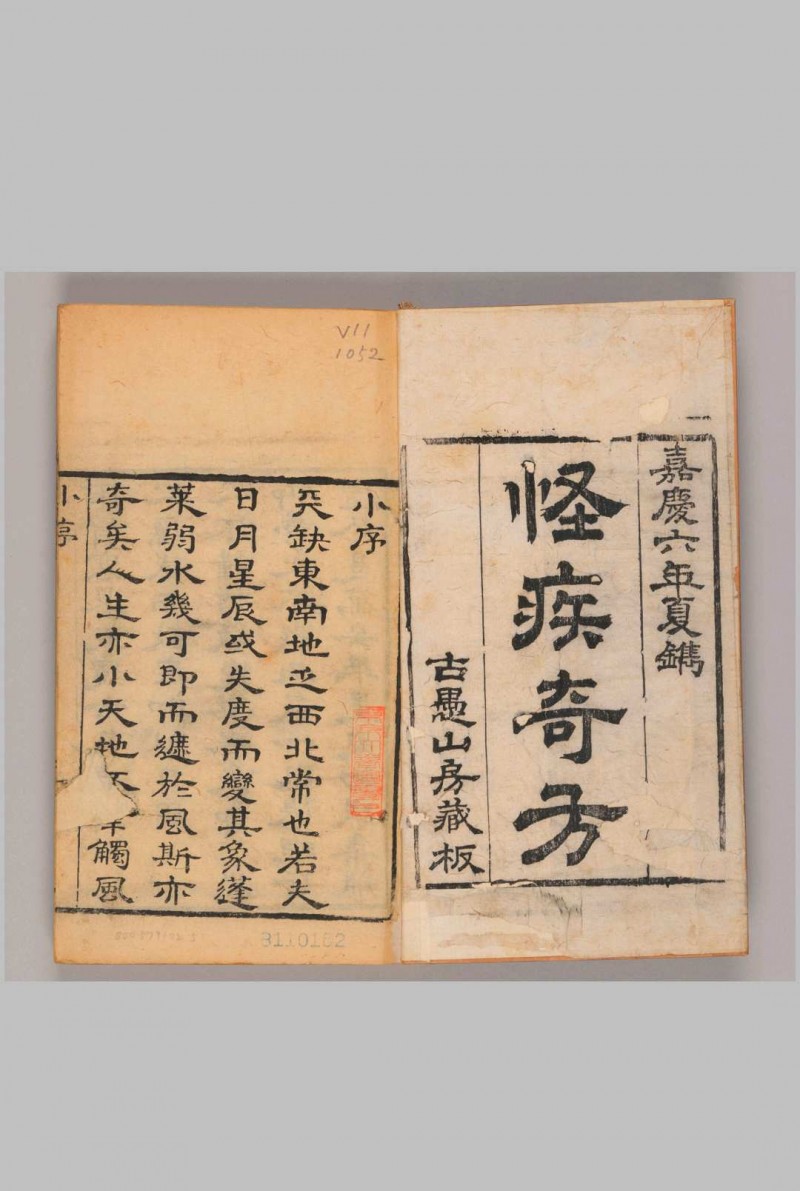 嘉慶六年夏鐫
怪疾奇方
古愚山房藏板
VII
1052
小序
天缺東南地乏西北常也若夫
日月星辰或失度而變其象蓬
萊弱水幾可即而遽於風斯亦
奇矣人生亦小天地不觸風
小序